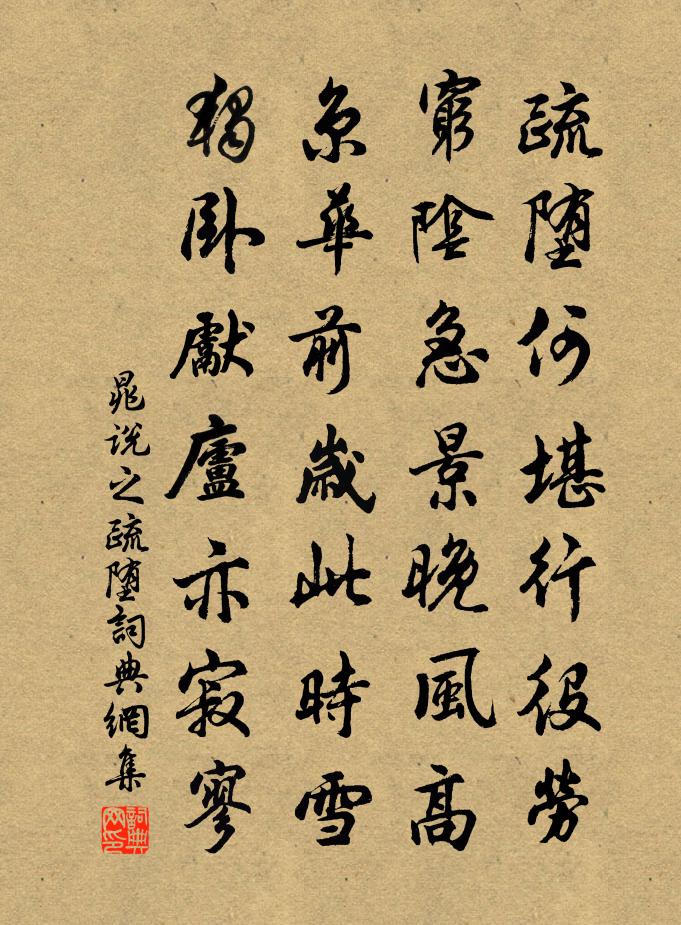 疏堕何堪行役勞
窮陰急景晚風高
京華前歲此時雪
獨卧獻廬亦寂寥
晁说之疏堕詞典網集
詞典网印